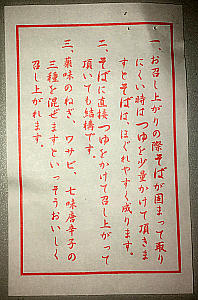 一、お召し上がりの際そばが固まって取り
にくい時はつゆを少量かけて頂きま
すとそばは、ほぐれやすく成ります。
二、そばに直接つゆをかけて召し上がって
頂いても結構です。
三、薬味のねぎ、ワサビ、七味唐辛子の
三種を混ぜますといっそうおいしく
召し上がれます。